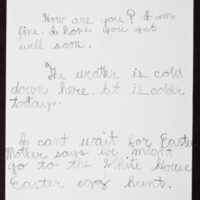 How are you? I am
fine. I hope you get
well soon.
The weather is cold
down here. It is colder
today.
I cant wait for Easter
Mother says we might
go to the White House
Easter egg hunt.